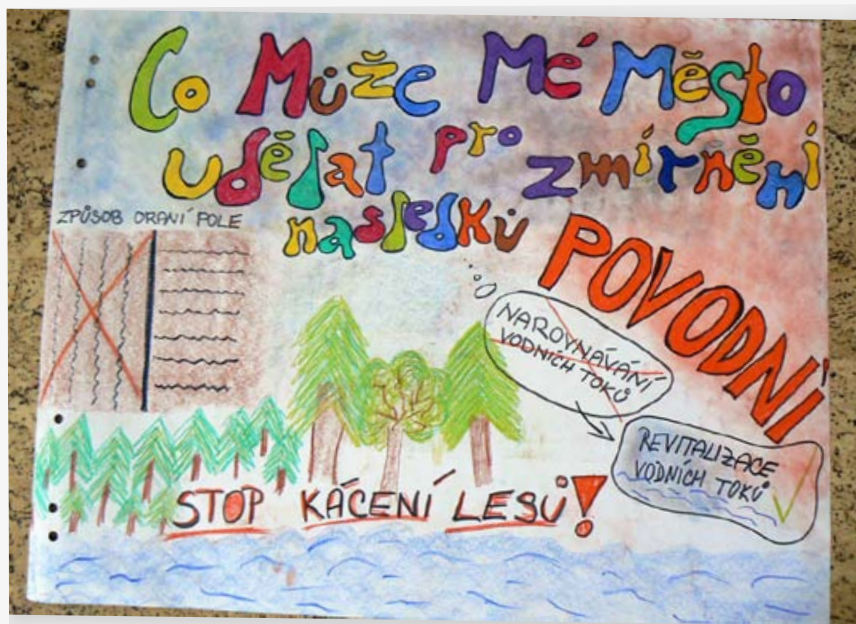 Co Může Mé Město
udělat pro zmírnění
následků
POVODNÍ
ZPŮSOB ORANÍ POLE
NAROVNÁVÁNÍ
VODNÍCH TOKŮ
REVITALIZACE
VODNÍCH TOKŮ
STOP KÁCENÍ LESŮ!